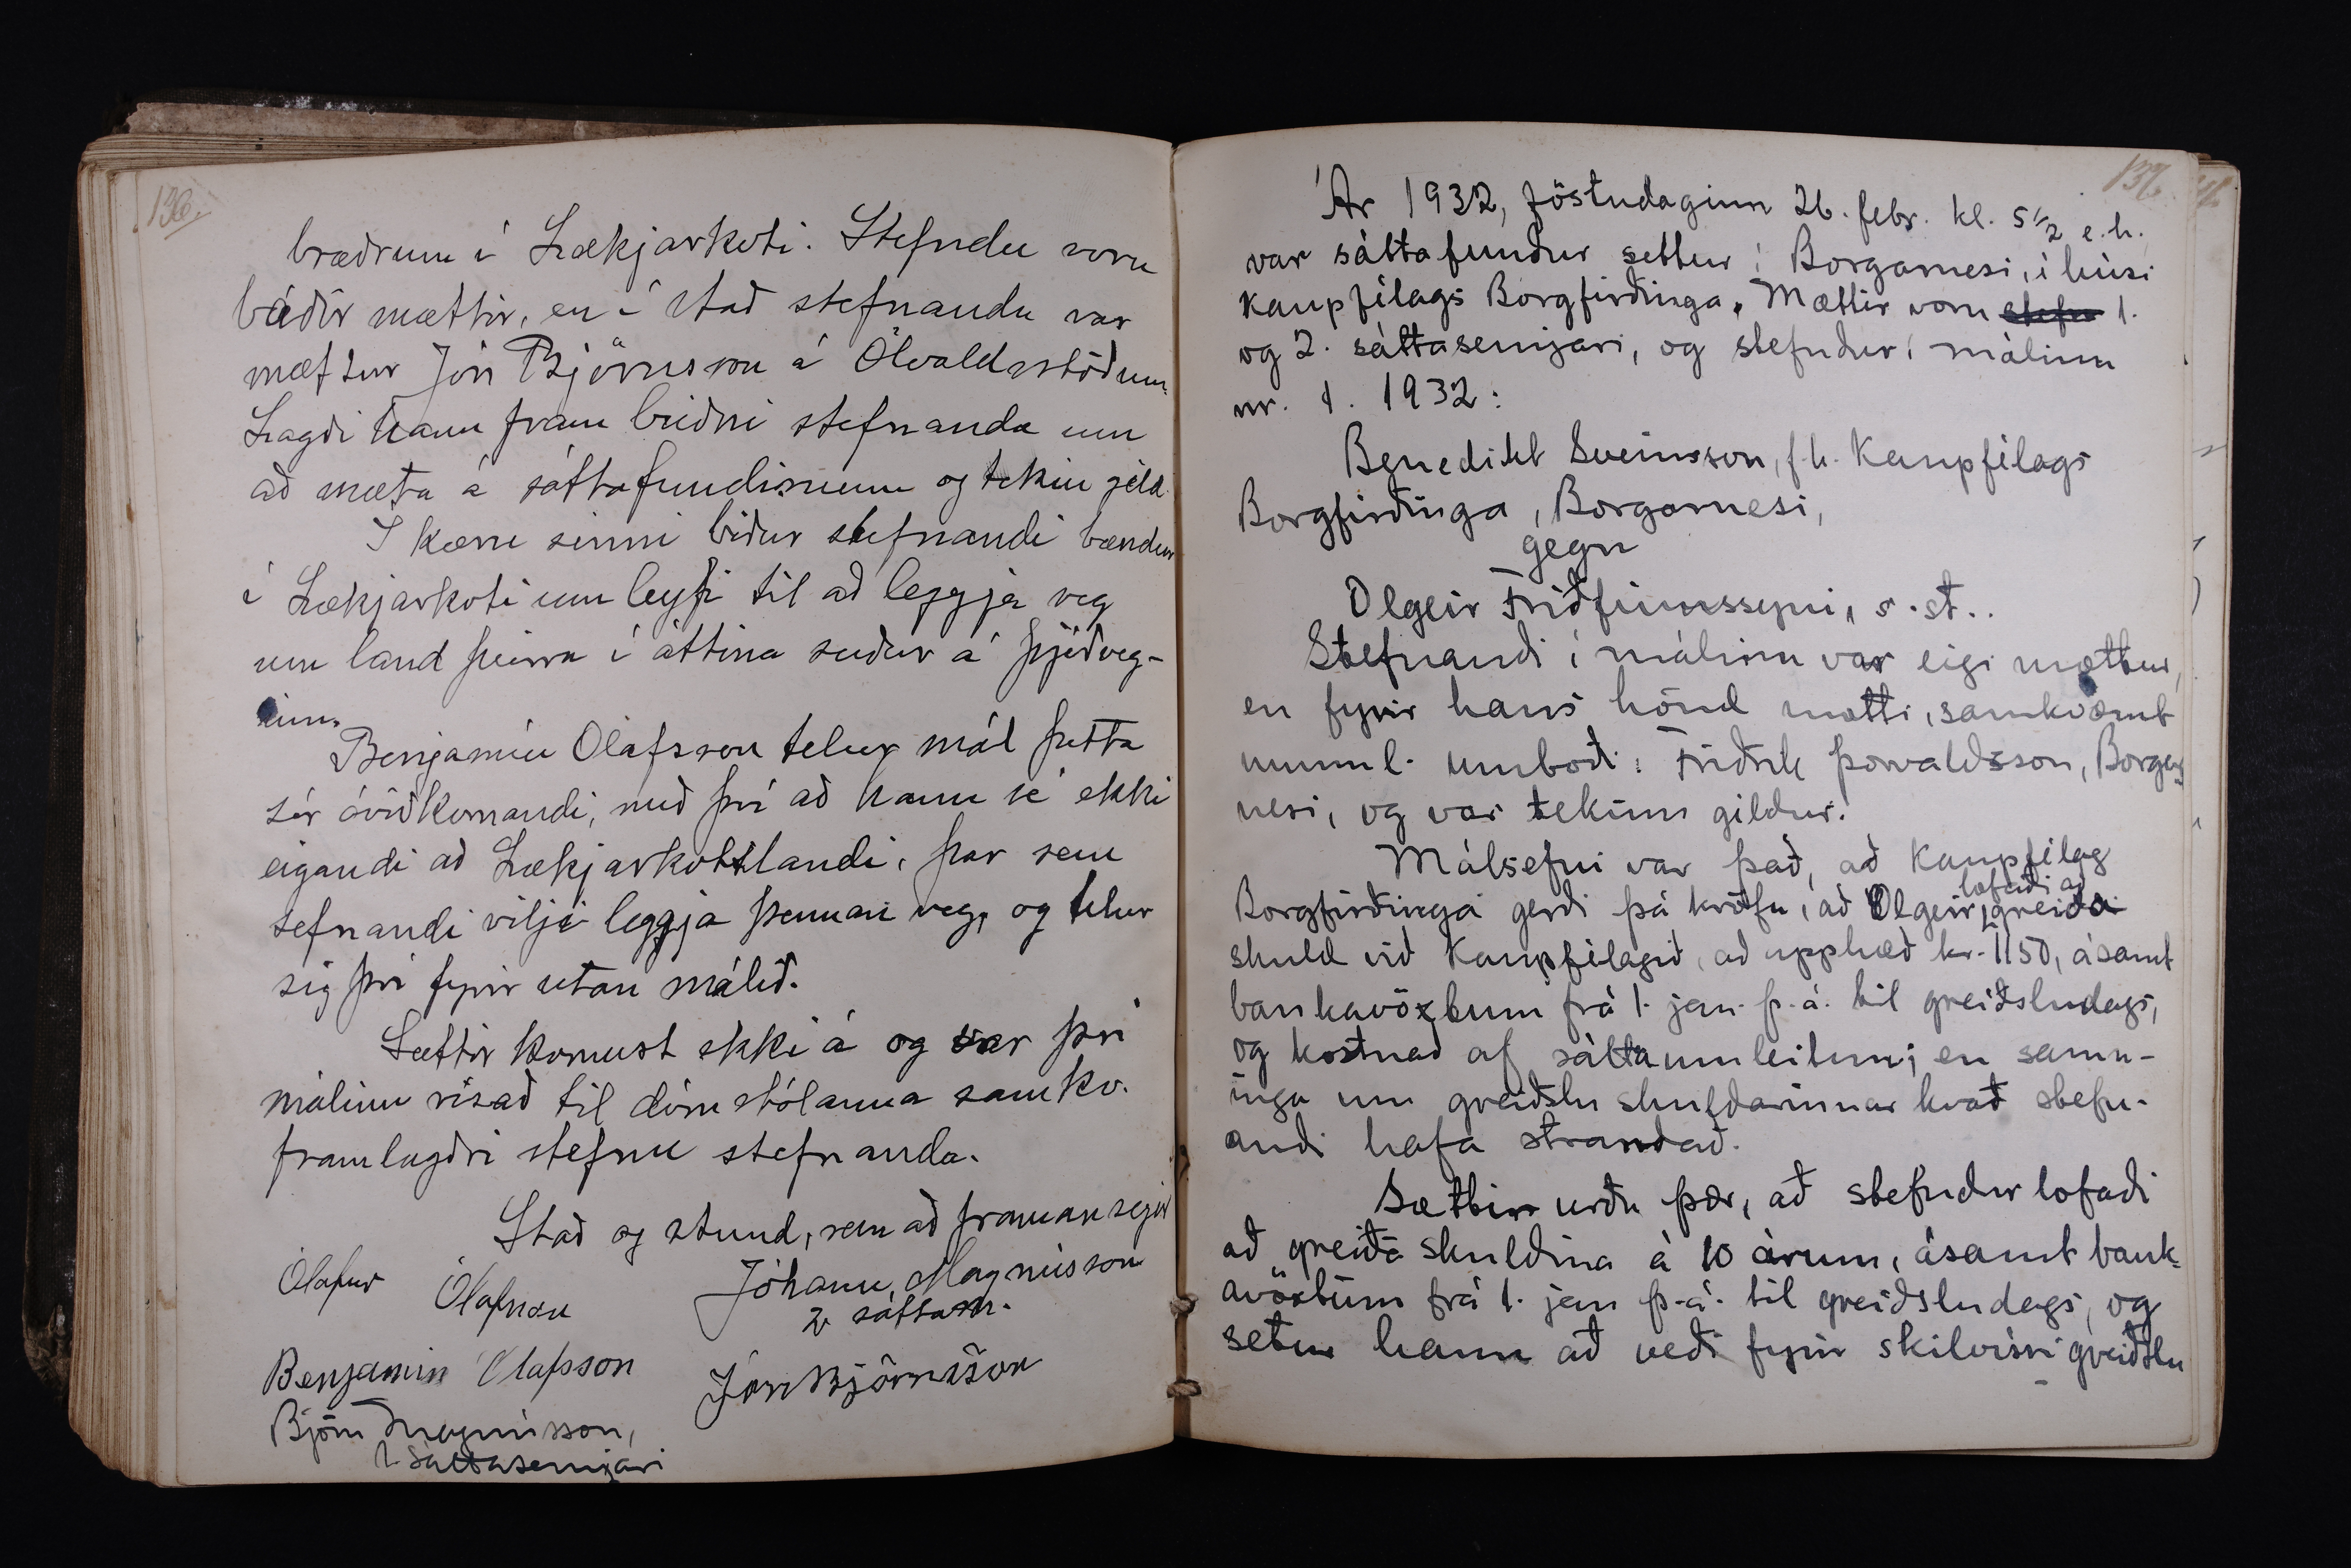 136.
bræðrum í Lækjarkoti. Stefndu voru
báðir mættir, en í stað stefnanda var
mættur Jón Björnsson á Ölvaldsstöðum.
Lagði hann fram beiðni stefnanda um
að mæta á sáttafundinum og tekin gild.
Í kæru sinni biður stefnandi bændur
í Lækjarkoti um leyfi til að leggja veg
um land þeirra í áttina suður á þjóðveg-
inn.
Benjamín Ólafsson telur mál þetta
sér óviðkomandi, með því að hann sé ekki
eigandi að Lækjarkotslandi, þar sem
sefnandi vilji leggja þennan veg, og telur
sig því fyrir utan málið.
Sættir komust ekki á og var því
málinu vísað til dómstólanna samkv.
framlagðri stefnu stefnanda.
Stað og stund, sem að framan segir
Ólafur Ólafsson
Jóhann Magnússon
2 sáttam.
Benjamín Ólafsson
Jón Björnsson
Björn Magnússon,
1. sáttasemjari
137.
Ár 1932, föstudaginn 26. febr. kl. 5 1/2 e.h.
var sáttafundur settur í Borgarnesi, í húsi
Kaupfélags Borgfirðinga. Mættir voru stefn 1.
og 2. sáttasemjari, og stefndur í málinu
nr. 1. 1932:
Benedikt Sveinsson, f.h. Kaupfélags
Borgfirðinga, Borgarnesi,
gegn
Olgeir Friðfinnssyni, s.st..
Stefnandi í málinu var eigi mættur,
en fyrir hans hönd mætti, samkvæmt
munnl. umboði: Friðrik Þorvaldsson, Borgar-
nesi, og var tekinn gildur.
Málsefni var það, að Kaupfélag
Borgfirðinga gerði þá kröfu, að Olgeir lofaði að greiða
skuld við Kaupfélagið, að upphæð kr. 1150, ásamt
bankavöxtum frá 1. jan. þ.á. til greiðsludags,
og kostnað af sáttaumleitun; en samn-
inga um greiðslu skuldarinnar kvað stefn-
andi hafa strandað.
Sættin urðu þær, að stefndur lofaði
að greiða skuldina á 10 árum, ásamt bank-
avöxtum frá 1. jan þ.á. til greiðsludags, og
setur hann að veði fyrir skilvísri greiðslu